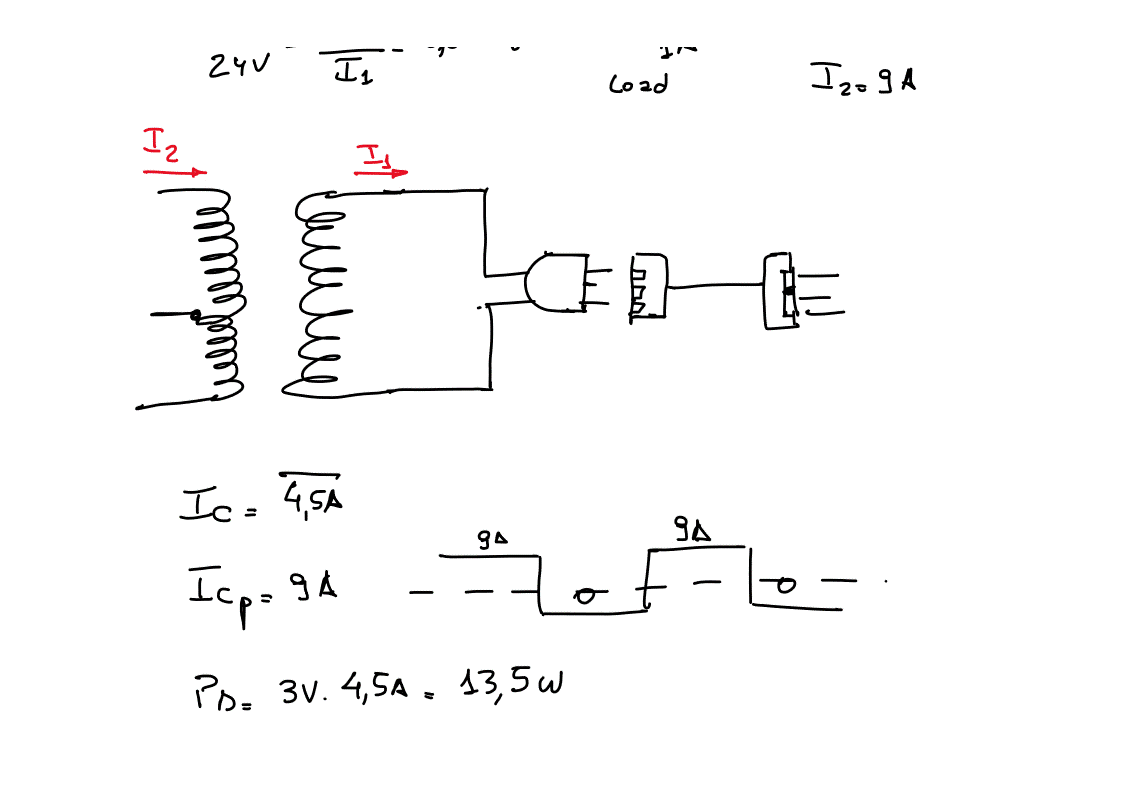 24V I₁ Load I₂= 9A
I₂ I₁
I_C = 4,5A
9A 9A
I_Cp = 9A 0 0
P_D = 3V. 4,5A = 13,5W